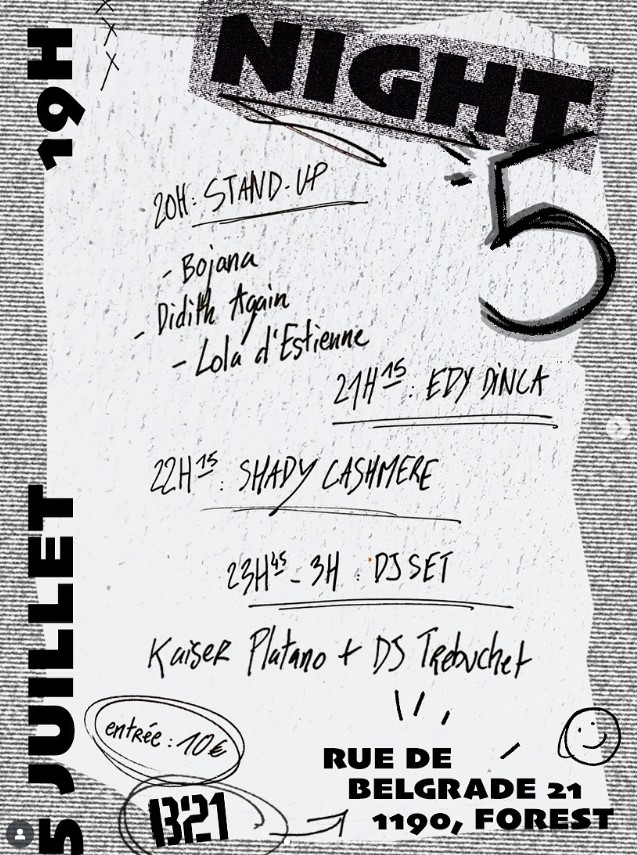 NIGHT
5
19H
5 JUILLET
20H: STAND-UP
- Bojana
- Didith Again
- Lola d'Estienne
21H15: EDY DINCA
22H15: SHADY CASHMERE
23H45 - 3H : DJ SET
Kaiser Platano + DJ Trebuchet
entrée : 10€
B21
RUE DE
BELGRADE 21
1190, FOREST